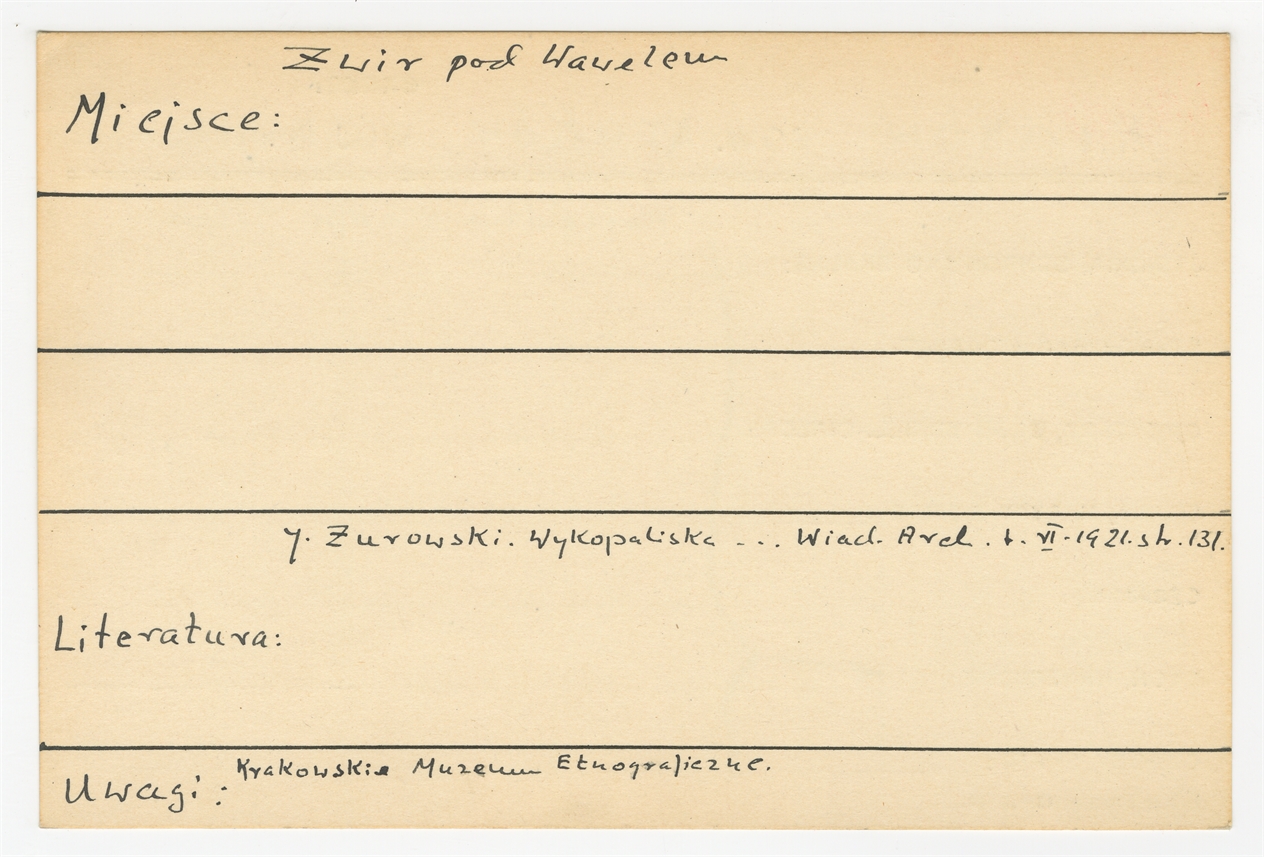 Żwir pod Wawelem
Miejsce:
J. Żurowski. Wykopaliska ... Wiad. Arch. t. VI. 1921. str. 131.
Literatura:
Krakowskie Muzeum Etnograficzne.
Uwagi: